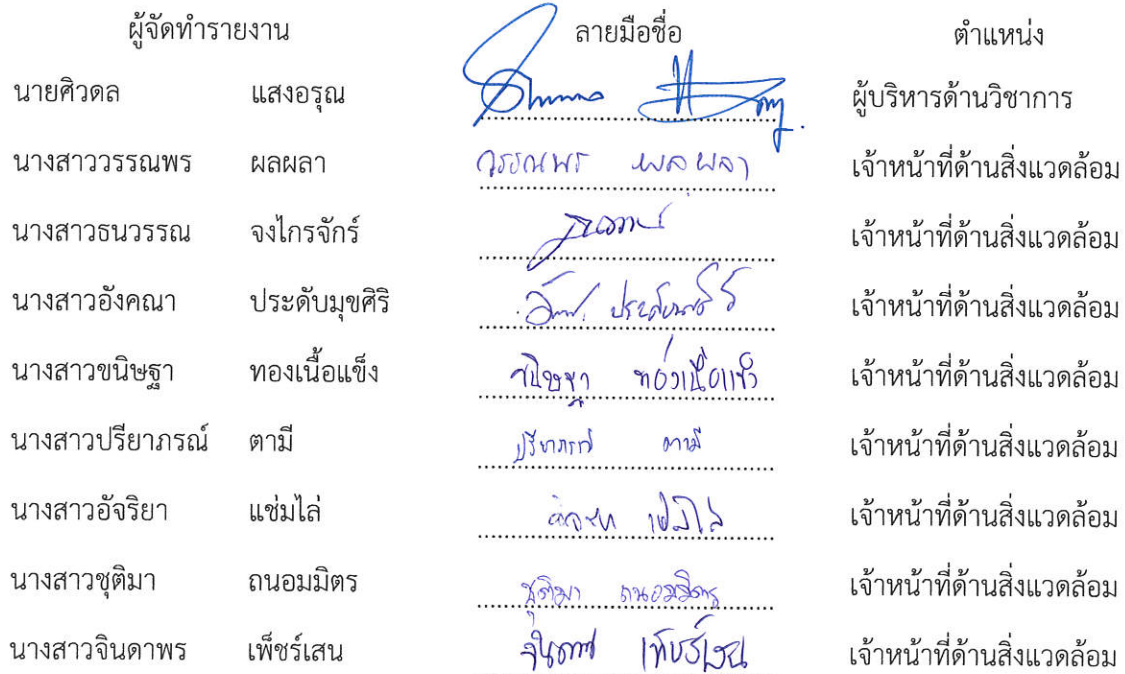 ผู้จัดทำรายงาน ลายมือชื่อ ตำแหน่ง
นายศิวดล แสงอรุณ ผู้บริหารด้านวิชาการ
นางสาววรรณพร ผลผลา วรรณพร ผลผลา เจ้าหน้าที่ด้านสิ่งแวดล้อม
นางสาวธนวรรณ จงไกรจักร์ เจ้าหน้าที่ด้านสิ่งแวดล้อม
นางสาวอังคณา ประดับมุขศิริ เจ้าหน้าที่ด้านสิ่งแวดล้อม
นางสาวขนิษฐา ทองเนื้อแข็ง ขนิษฐา ทองเนื้อแข็ง เจ้าหน้าที่ด้านสิ่งแวดล้อม
นางสาวปรียาภรณ์ ตามี ปรียาภรณ์ ตามี เจ้าหน้าที่ด้านสิ่งแวดล้อม
นางสาวอัจริยา แช่มไล่ เจ้าหน้าที่ด้านสิ่งแวดล้อม
นางสาวชุติมา ถนอมมิตร ชุติมา ถนอมมิตร เจ้าหน้าที่ด้านสิ่งแวดล้อม
นางสาวจินดาพร เพ็ชร์เสน เจ้าหน้าที่ด้านสิ่งแวดล้อม